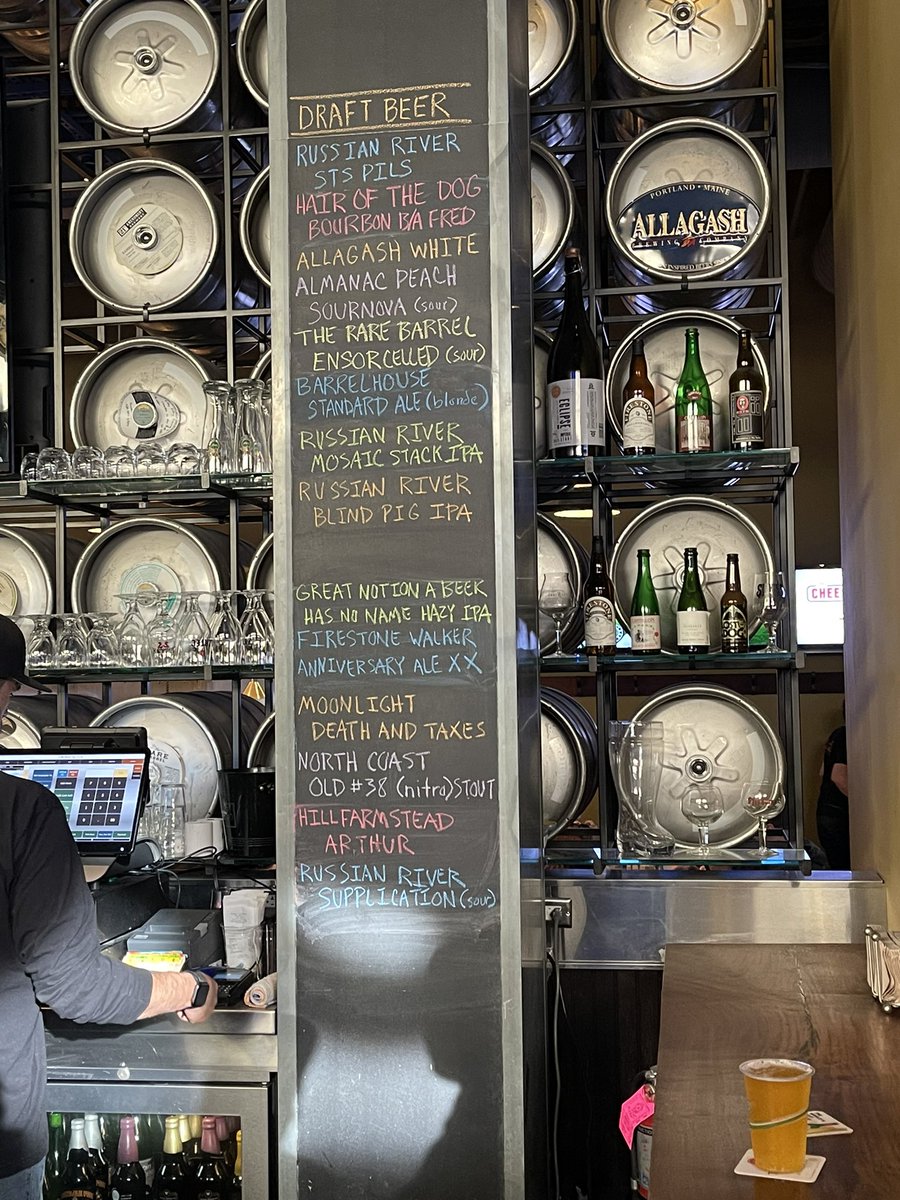 DRAFT BEER
RUSSIAN RIVER
STS PILS
HAIR OF THE DOG
BOURBON B/A FRED
ALLAGASH WHITE
ALMANAC PEACH
SOURNOVA (sour)
THE RARE BARREL
ENSORCELLED (sour)
BARRELHOUSE
STANDARD ALE (blonde)
RUSSIAN RIVER
MOSAIC STACK IPA
RUSSIAN RIVER
BLIND PIG IPA
GREAT NOTION A BEEK
HAS NO NAME HAZY IPA
FIRESTONE WALKER
ANNIVERSARY ALE XX
MOONLIGHT
DEATH AND TAXES
NORTH COAST
OLD #38 (nitro) STOUT
HILLFARMSTEAD
ARTHUR
RUSSIAN RIVER
SUPPLICATION (sour)
PORTLAND • MAINE
ALLAGASH
BREWING COMPANY
ECLIPSE
CHEE